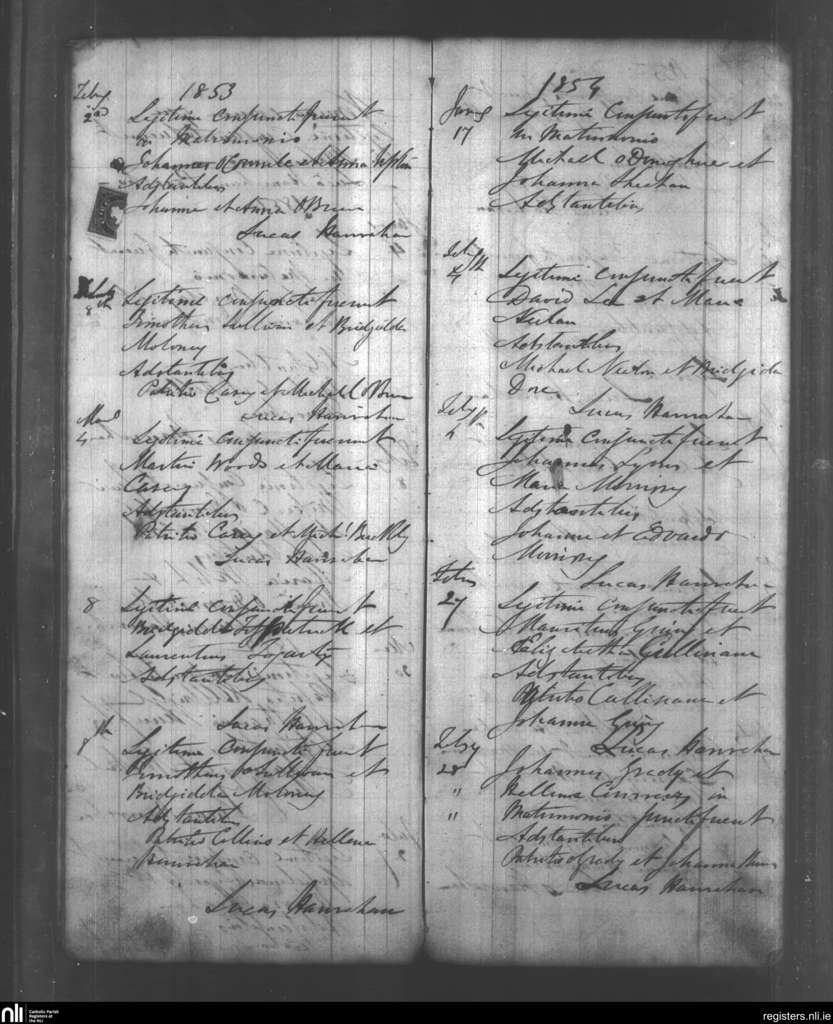 1853
Feby
2nd
Legitime conjuncti fuerunt
in Matrimonio
Johannes et Anna
Adstantibus
Johanne et Anna OBrien
Lucas Hanrahan
8th
Legitime conjuncti fuerunt
Timotheus Sullivan et Bridgidda
Moloney
Adstantibus
Patritio Casey et Michael OBrien
Lucas Hanrahan
Legitime conjuncti fuerunt
Martin Woods et Maria
Casey
Adstantibus
Patritio Casey et Michl Buckley
Lucas Hanrahan
8
Legitime conjuncti fuerunt
Bridgidda Fitzpatrick et
Laurentius Fogarty
Adstantibus
Lucas Hanrahan
8th
Legitime Conjuncti fuerunt
Timotheus OSullivan et
Bridgidda Moloney
Adstantibus
Patritio Collins et Hellena
Lucas Hanrahan
1854
17
Legitime Conjuncti fuerunt
in Matrimonio
Michael ODonoghue et
Johanna Sheehan
Adstantibus
Legitime conjuncti fuerunt
David Lee et Maria
Adstantibus
Michael et Bridgida
Dore
Lucas Hanrahan
Legitime conjuncti fuerunt
Johannes Lyons et
Maria
Adstantibus
Johanne et Edvardo
Lucas Hanrahan
27
Legitime conjuncti fuerunt
Mauritius et
Elizabetha Cullinane
Adstantibus
Patritio Callinane et
Johanna
Lucas Hanrahan
Feby
28
Johannes Grady et
" Hellena in
" Matrimonio juncti fuerunt
Adstantibus
Patritio OGrady et Johanna
Lucas Hanrahan
nli
Catholic Parish
Registers at
the NLI
registers.nli.ie